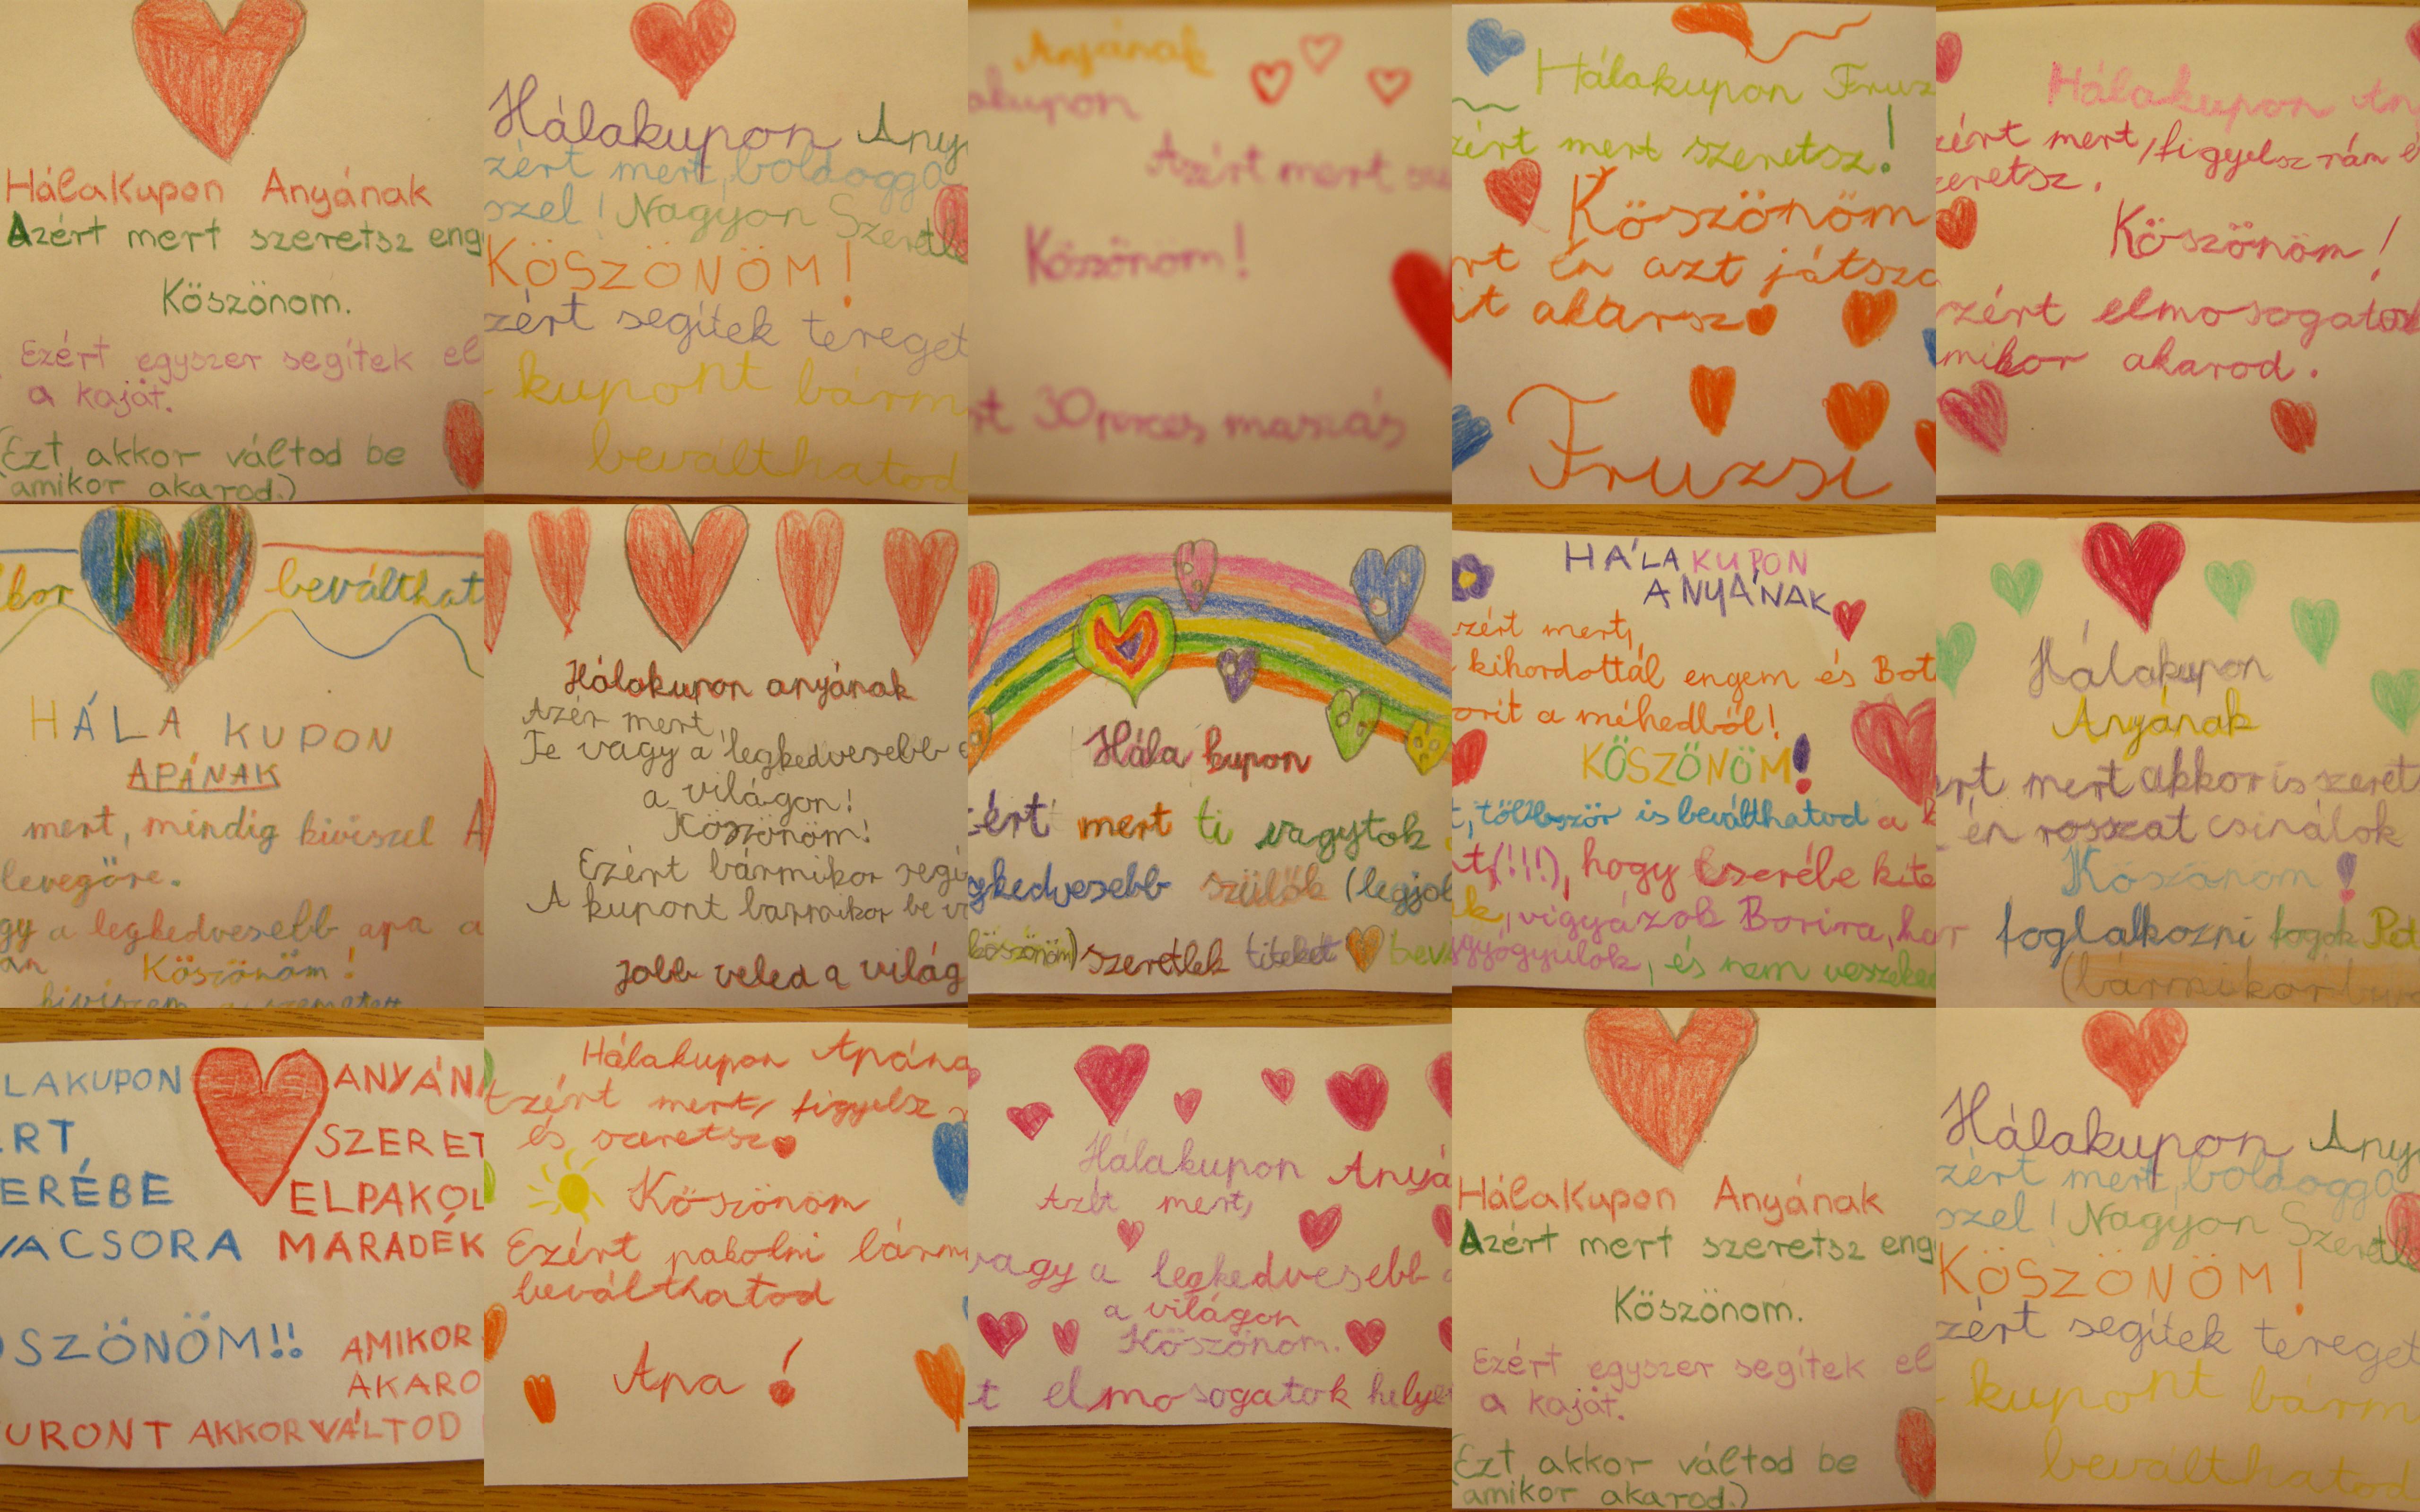 HálaKupon Anyának
Azért mert szeretsz eng
Köszönom.
Ezért egyszer segítek el
a kaját.
(Ezt akkor váltod be
amikor akarod.)
Hálakupon Any
zért mert, boldogga
szel! Nagyon Szeretl
KÖSZÖNÖM!
zért segítek tereget
kupont bárm
beválthatod
Anyának
akupon
Azért mert sze
Köszönöm!
rt 30 perces masszás
Hálakupon Fruz
zért mert szeretsz!
Köszönöm
rt én azt játszo
it akarsz
Fruzsi
Hálakupon Any
zért mert, figyelsz rám é
zeretsz.
Köszönöm!
zért elmosogatok
mikor akarod.
kor beválthat
HÁLA KUPON
APÁNAK
mert, mindig kiviszel A
levegőre.
gy a legkedvesebb apa a
án Köszönöm!
kiviszem a szemetet
Hálakupon anyának
Azér mert,
Te vagy a legkedvesebb
a világon!
Köszönöm!
Ezért bármikor segí
A kupont barmikor be v
Jobb veled a világ
Hála kupon
zért mert ti vagytok
gkedvesebb szülők (legjob
köszönöm) szeretlek titeket bev
HÁLAKUPON
ANYÁNAK
zért mert,
kihordottál engem és Bot
orit a méhedből!
KÖSZÖNÖM!
t, többször is beválthatod a k
t(!!!), hogy cserébe kite
k, vigyázok Borira, ha
ggyógyulok, és nem veszeke
Hálakupon
Anyának
ert mert akkor is szeret
én rosszat csinálok
Köszönöm!
r foglalkozni fogok Pet
(bármikor
LAKUPON ANYÁN
ÉRT, SZERET
ERÉBE ELPAKOL
VACSORA MARADÉK
ÖSZÖNÖM!! AMIKOR
AKARO
UPONT AKKOR VÁLTOD
Hálakupon Apána
Azért mert, figyelsz
és szeretsz
Köszönöm
Ezért pakolni bárm
beválthatod
Apa!
Hálakupon Anyá
Azét mert,
vagy a legkedvesebb
a világon
Köszönom.
t elmosogatok helye
HálaKupon Anyának
Azért mert szeretsz eng
Köszönom.
Ezért egyszer segítek el
a kaját.
(Ezt akkor váltod be
amikor akarod.)
Hálakupon Any
zért mert, boldogga
szel! Nagyon Szeretl
KÖSZÖNÖM!
zért segítek tereget
kupont bárm
beválthatod